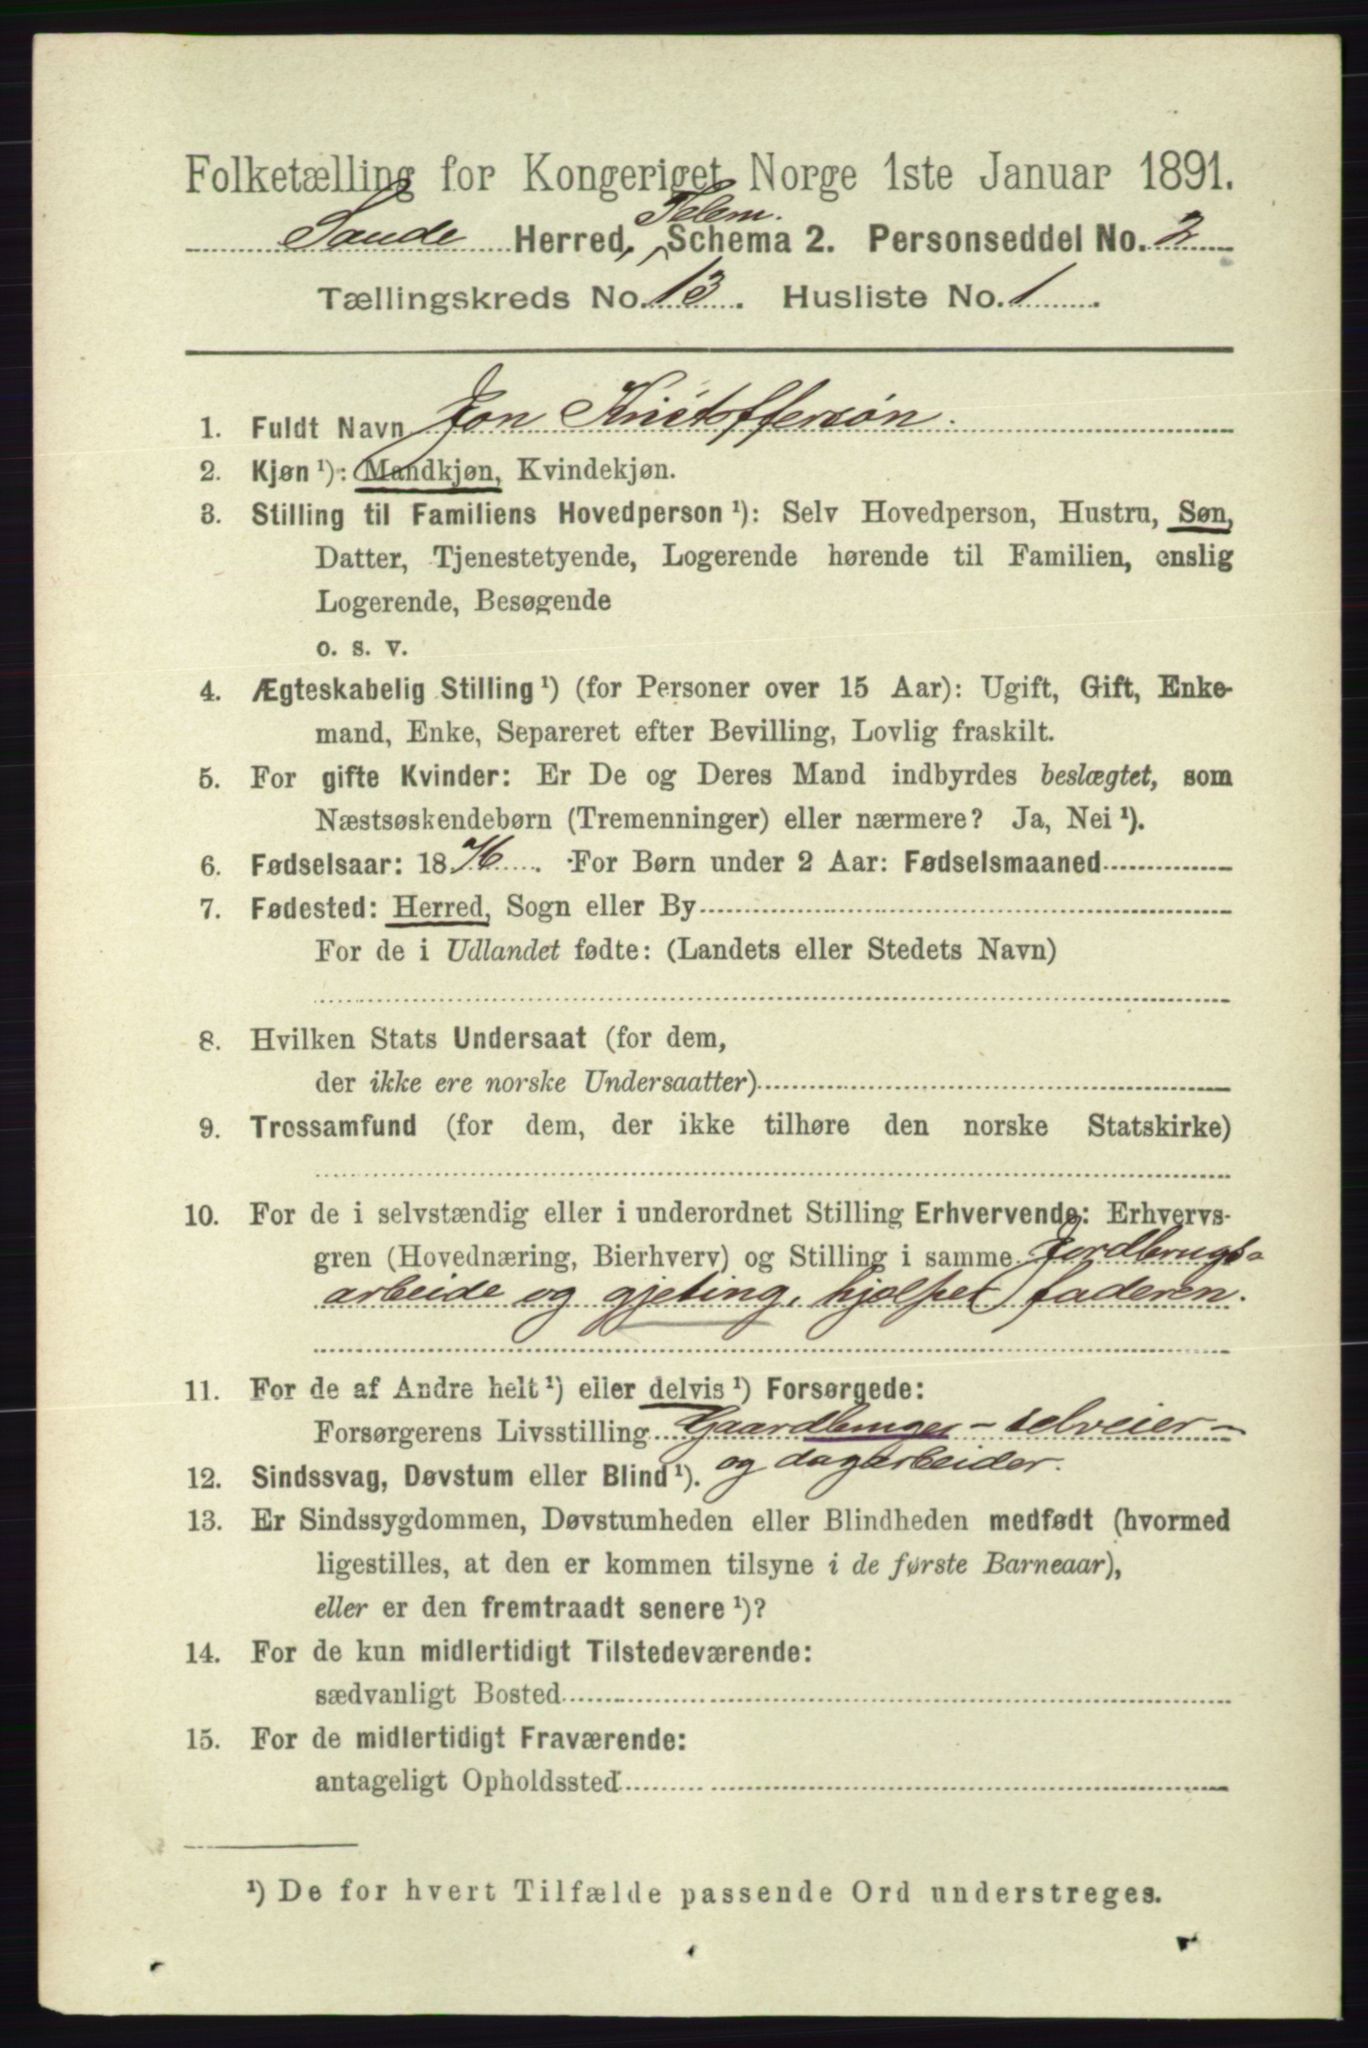 Folketælling for Kongeriget Norge 1ste Januar 1891.
Telem.
Saude Herred, Schema 2. Personseddel No. 2
Tællingskreds No. 13. Husliste No. 1.
1. Fuldt Navn Jon Kristoffersøn.
2. Kjøn ¹): Mandkjøn, Kvindekjøn.
3. Stilling til Familiens Hovedperson ¹): Selv Hovedperson, Hustru, Søn,
Datter, Tjenestetyende, Logerende hørende til Familien, enslig
Logerende, Besøgende
o. s. v.
4. Ægteskabelig Stilling ¹) (for Personer over 15 Aar): Ugift, Gift, Enke-
mand, Enke, Separeret efter Bevilling, Lovlig fraskilt.
5. For gifte Kvinder: Er De og Deres Mand indbyrdes beslægtet, som
Næstsøskendebørn (Tremenninger) eller nærmere? Ja, Nei ¹).
6. Fødselsaar: 1876. For Børn under 2 Aar: Fødselsmaaned
7. Fødested: Herred, Sogn eller By
For de i Udlandet fødte: (Landets eller Stedets Navn)
8. Hvilken Stats Undersaat (for dem,
der ikke ere norske Undersaatter)
9. Trossamfund (for dem, der ikke tilhøre den norske Statskirke)
10. For de i selvstændig eller i underordnet Stilling Erhvervende: Erhvervs-
gren (Hovednæring, Bierhverv) og Stilling i samme Jordbrugs-
arbeide og gjeting, hjælper faderen.
11. For de af Andre helt ¹) eller delvis ¹) Forsørgede:
Forsørgerens Livsstilling Gaardbruger - selveier -
og dagarbeider.
12. Sindssvag, Døvstum eller Blind ¹).
13. Er Sindssygdommen, Døvstumheden eller Blindheden medfødt (hvormed
ligestilles, at den er kommen tilsyne i de første Barneaar),
eller er den fremtraadt senere ¹)?
14. For de kun midlertidigt Tilstedeværende:
sædvanligt Bosted
15. For de midlertidigt Fraværende:
antageligt Opholdssted
¹) De for hvert Tilfælde passende Ord understreges.